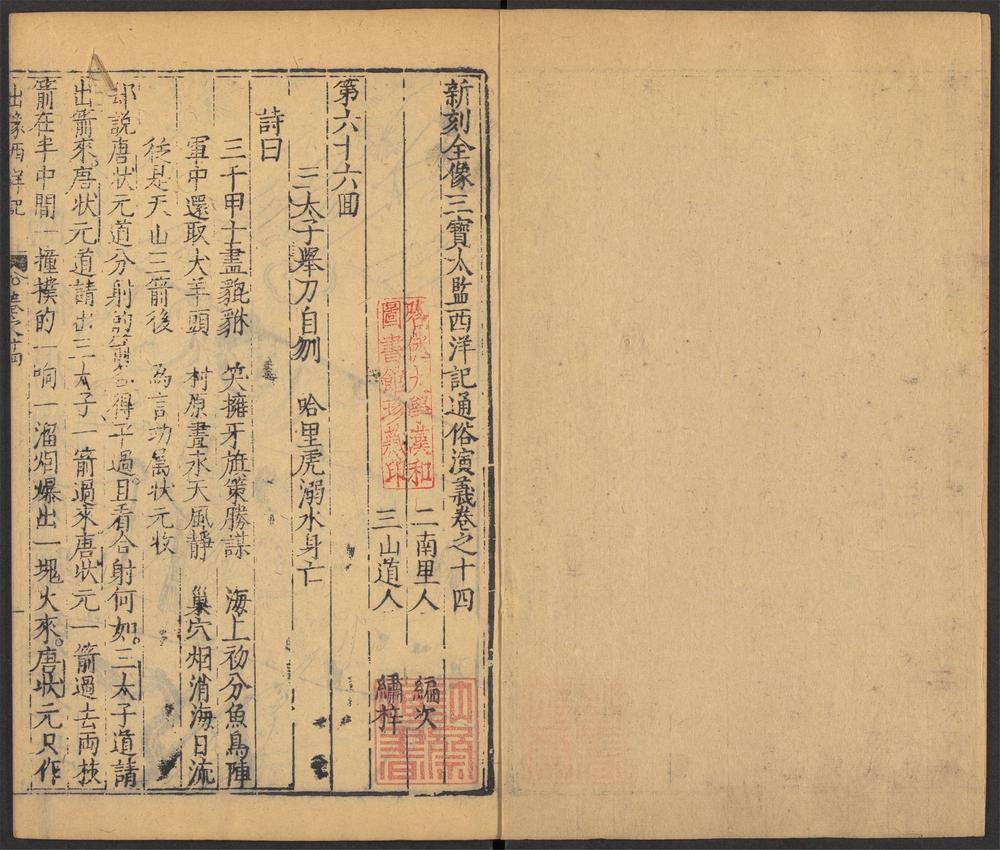 新刻全像三寶太監西洋記通俗演義卷之十四
二南里人 編次
三山道人 繡梓
哈佛大學漢和
圖書館珍藏印
第六十六回
三太子舉刀自刎 哈里虎溺水身亡
詩曰
三千甲士盡貔貅 笑擁牙旗策勝謀 海上初分魚鳥陣
軍中還取犬羊頭 村原晝永天風靜 巢穴烟消海日流
從是天山三箭後 為言功屬狀元收
却說唐狀元道分射的箭得平過且看合射何如三太子道請
出箭來唐狀元道請出三太子一箭過來唐狀元一箭過去兩枝
箭在半中間一撞撲的一响一溜烟爆出一塊火來唐狀元只作
出像西洋記 卷之十四 一